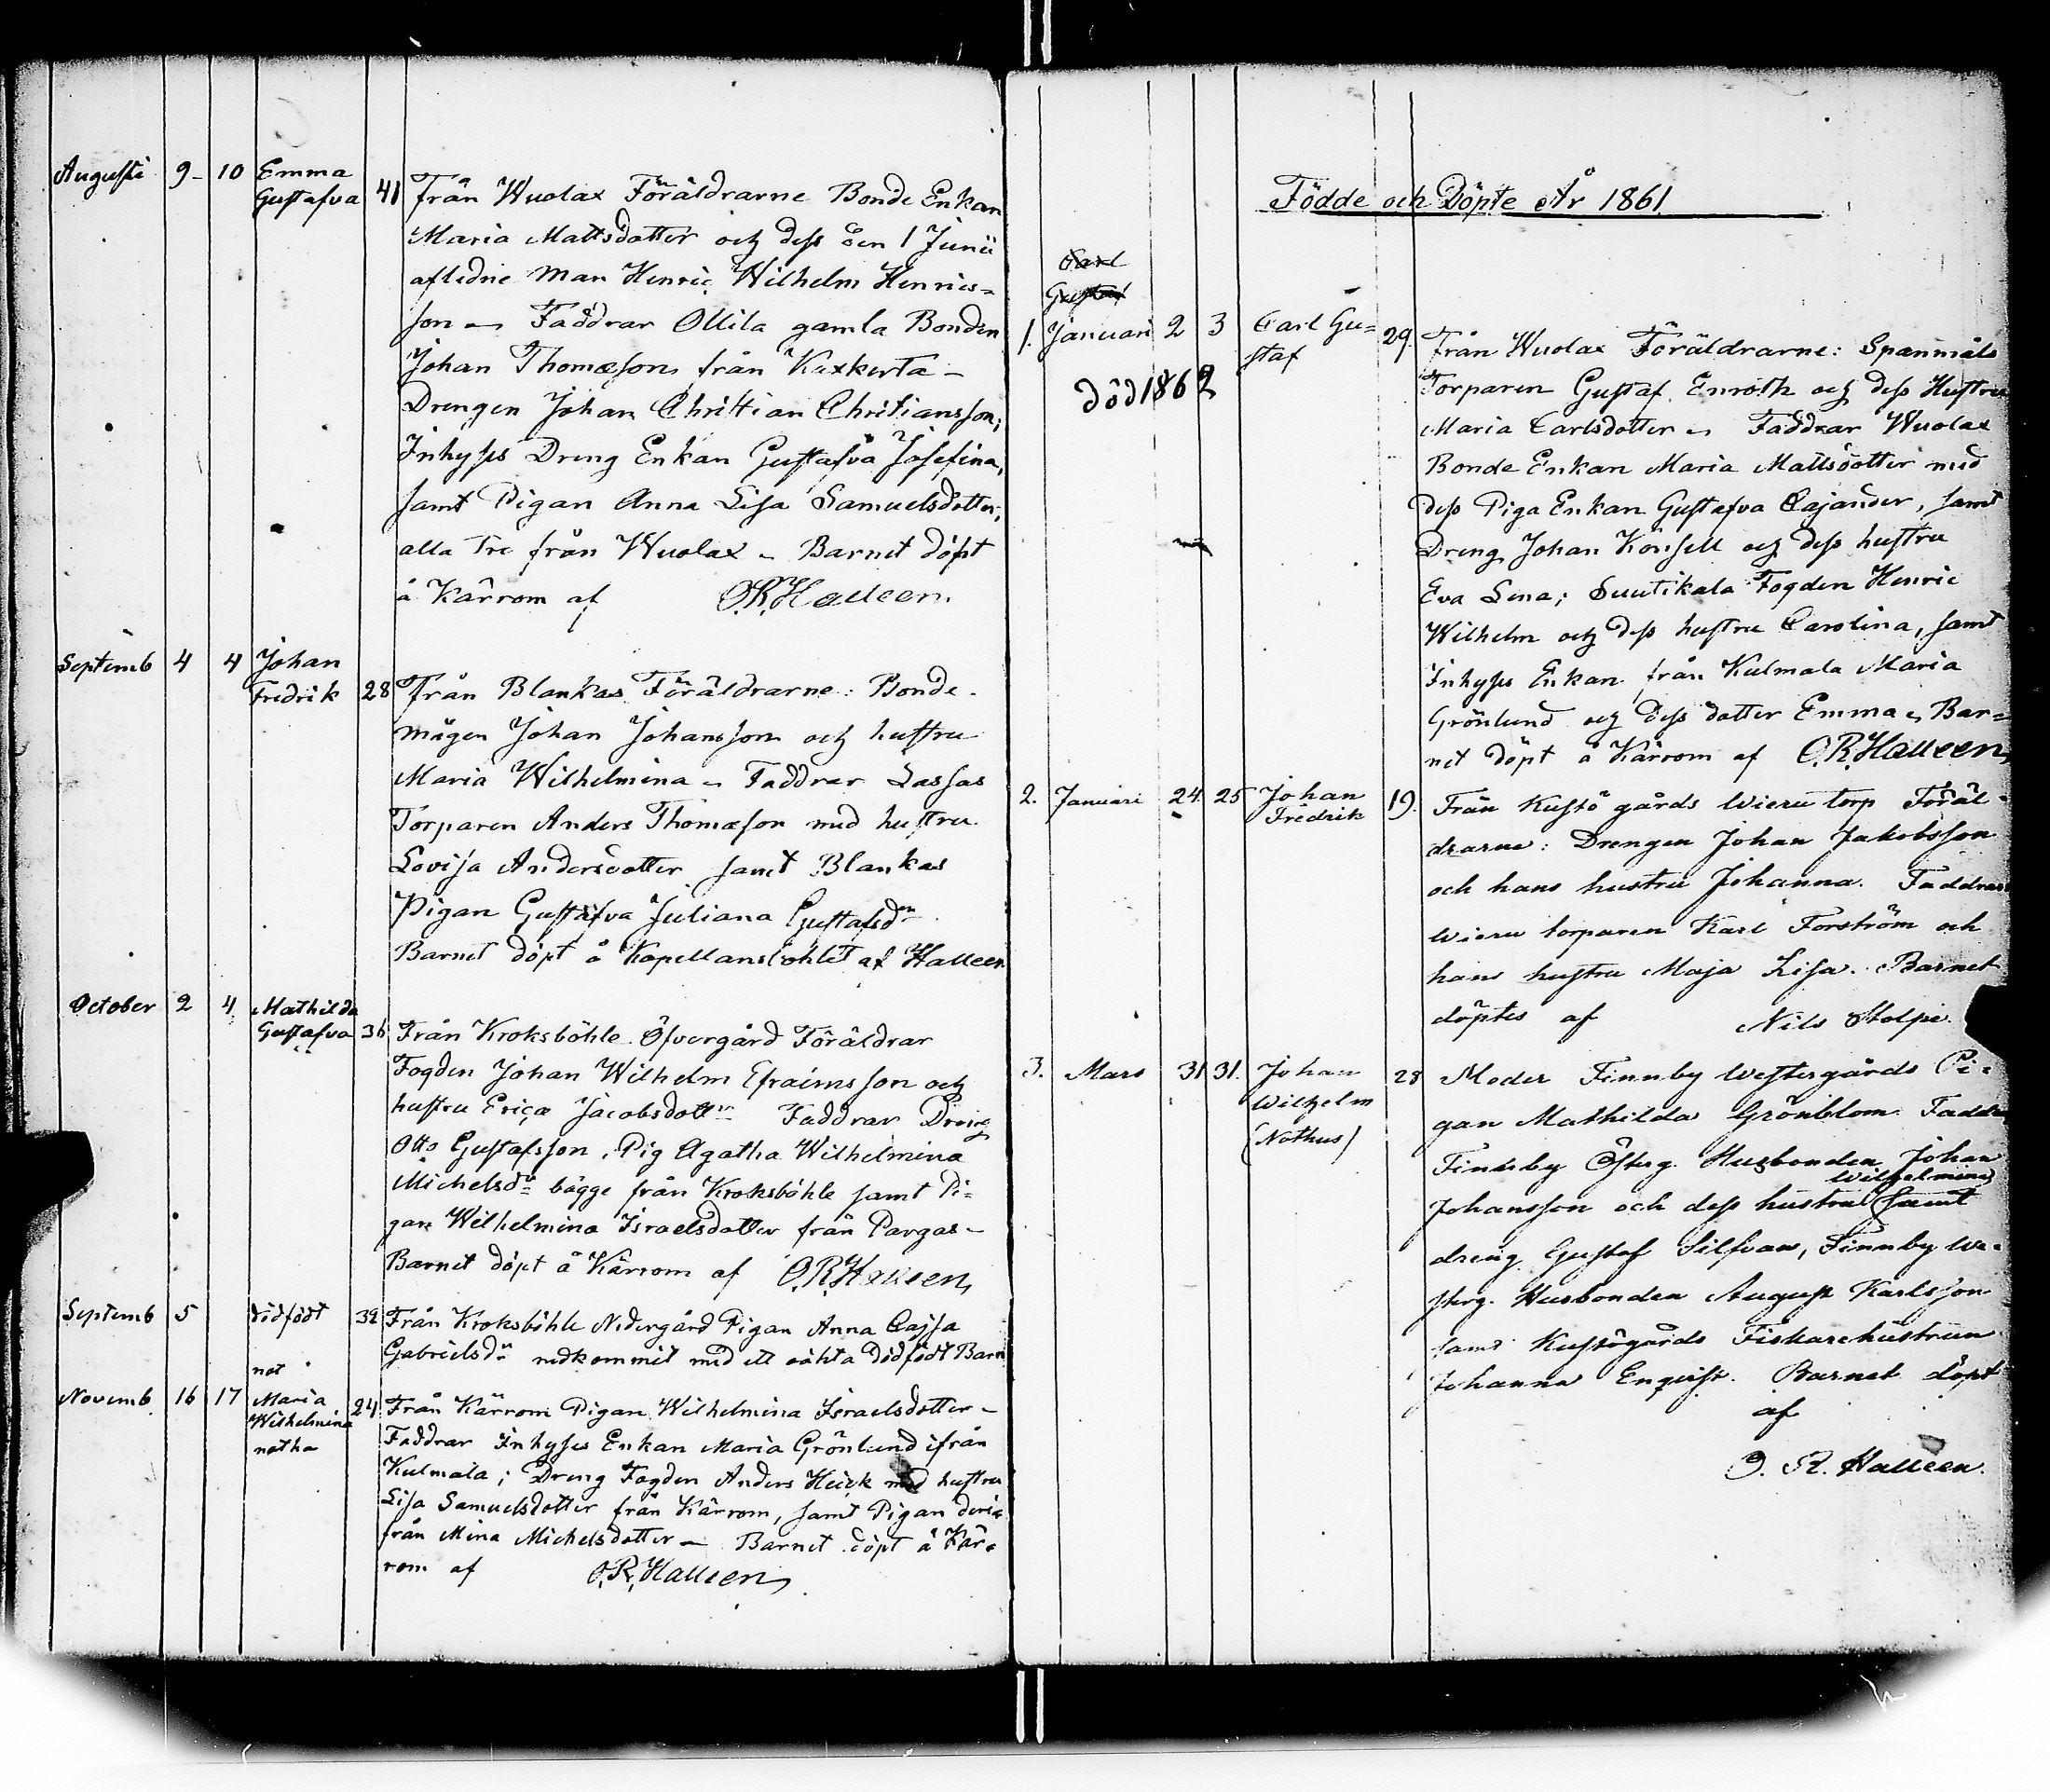 Augusti 9 - 10 Emma
Gustafva 41 Från Wuolax Föräldrarne Bonde Enkan
Maria Mattsdotter och dess den 1 Junii
aflidne Man Henric Wilhelm Henrics-
son - Faddrar Ollila gamla Bonden
Johan Thomæson från Kaxkerta -
Drengen Johan Christian Christiansson,
Inhyses Dreng Enkan Gustafva Josefina,
samt Pigan Anna Lisa Samuelsdotter,
alla Tre från Wuolax - Barnet döpt
å Kärrom af O.R.Halleen
Septemb 4 4 Johan
Fredrik 28 Från Blankas Föräldrarne: Bonde-
mågen Johan Johansson och hustru
Maria Wilhelmina - Faddrar Lassas
Torparen Anders Thomæson med hustru
Lovisa Andersdotter samt Blankas
Pigan Gustafva Juliana Gustafsdr
Barnet döpt å Kapellansbohlet af Halleen
October 2 4 Mathilda
Gustafva 36 Från Kroksböhle Öfvergård Föräldrar
Fogden Johan Wilhelm Efraimsson och
hustru Erica Jacobsdottr Faddrar Dreng
Otto Gustafsson, Pig Agatha Wilhelmina
Michelsdr bägge från Kroksböhle samt Pi-
gan Wilhelmina Israelsdotter från Pargas -
Barnet döpt å Kärrom af O.R.Halleen
Septemb 5 dödfödt 32 Från Kroksböhle Nedergård Pigan Anna Cajsa
Gabrielsdr nedkommit med ett oäkta dödfödt Barn
not
Novemb 16 17 Maria 24 Från Kärrom Pigan Wilhelmina Israelsdotter -
Wilhelmina
notha
Faddrar Inhyses Enkan Maria Grönlund ifrån
Kulmala; Dreng Fogden Anders Heick med hustru
Lisa Samuelsdotter från Kärrom, samt Pigan deri-
från Mina Michelsdotter - Barnet döpt å Kär-
rom af O.R.Halleen
Födde och Döpte År 1861
Carl
Gustaf
1. Januari 2 3 Carl Gu=
staf 29. Från Wuolax Föräldrarne: Spanmåls
död 1862
Torparen Gustaf Enroth och dess Hustru
Maria Carlsdotter - Faddrar Wuolax
Bonde Enkan Maria Mattsdotter med
dess Piga Enkan Gustafva Cajander, samt
Dreng Johan Könsell och dess hustru
Eva Lena; Suutikala Fogden Henric
Wilhelm och dess hustru Carolina, samt
Inhyses Enkan från Kulmala Maria
Grönlund och dess dotter Emma - Bar=
net döpt å Kärrom af O.R.Halleen
2. Januari 24. 25 Johan
Fredrik 19. Från Kustö gårds Wieru torp Föräl-
drarne: Drengen Johan Jakobsson
och hans hustru Johanna. Faddrar
Wieru torparen Karl Forström och
hans hustru Maja Lisa. Barnet
döptes af Nils Stolpe.
3. Mars 31 31. Johan
Wilhelm
(Nothus) 28 Moder Finnby Westergårds Pi-
gan Mathilda Grönblom. Faddr
Finnby Österg. Husbonden Johan
Wilhelmina
Johansson och dess hustru samt
dreng Gustaf Silfvan, Finnby We-
sterg. Husbonden August Karlsson
samt Kustögårds Fiskarehustrun
Johanna Enqvist. Barnet döpt
af
O. R. Halleen.